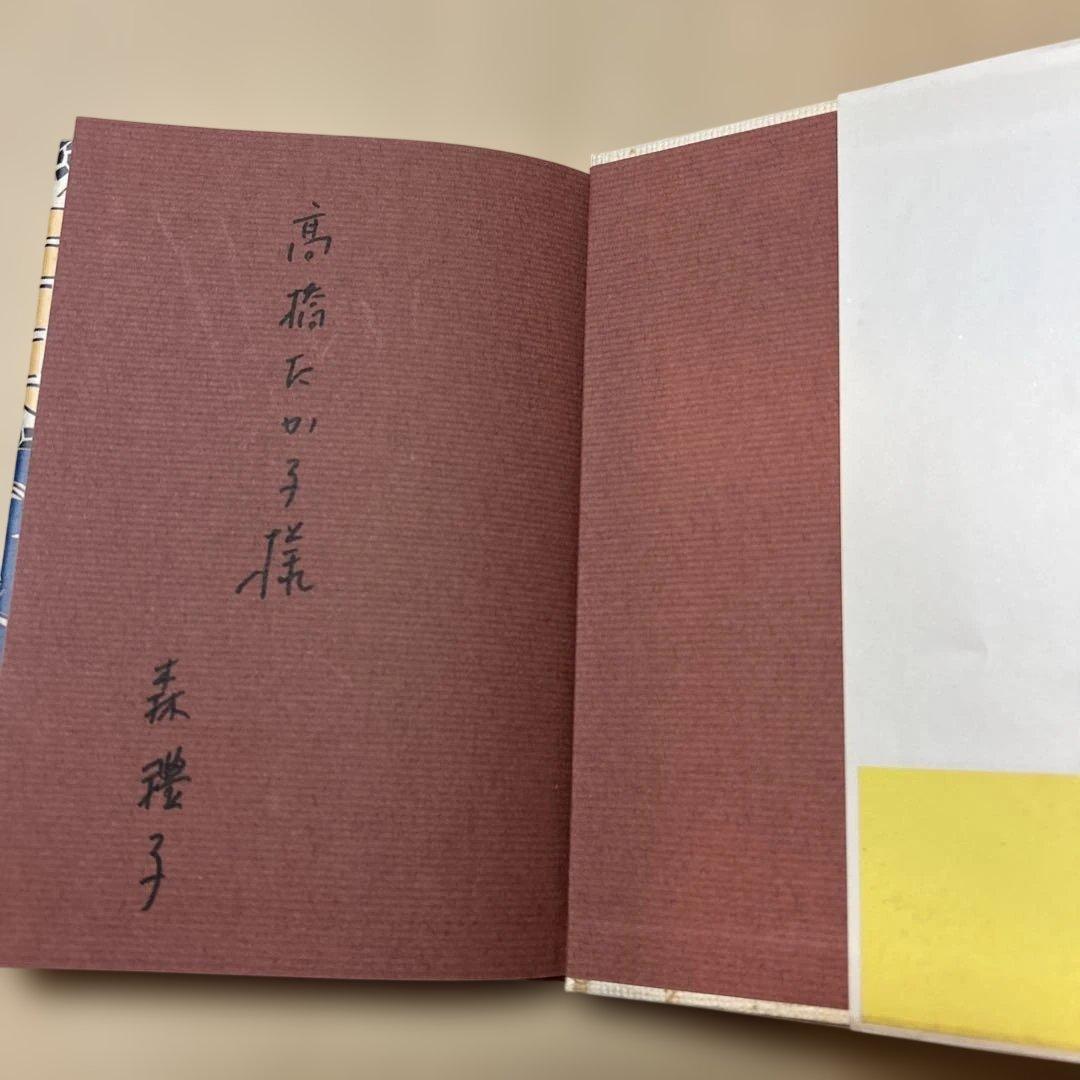 高橋たか子様
森禮子